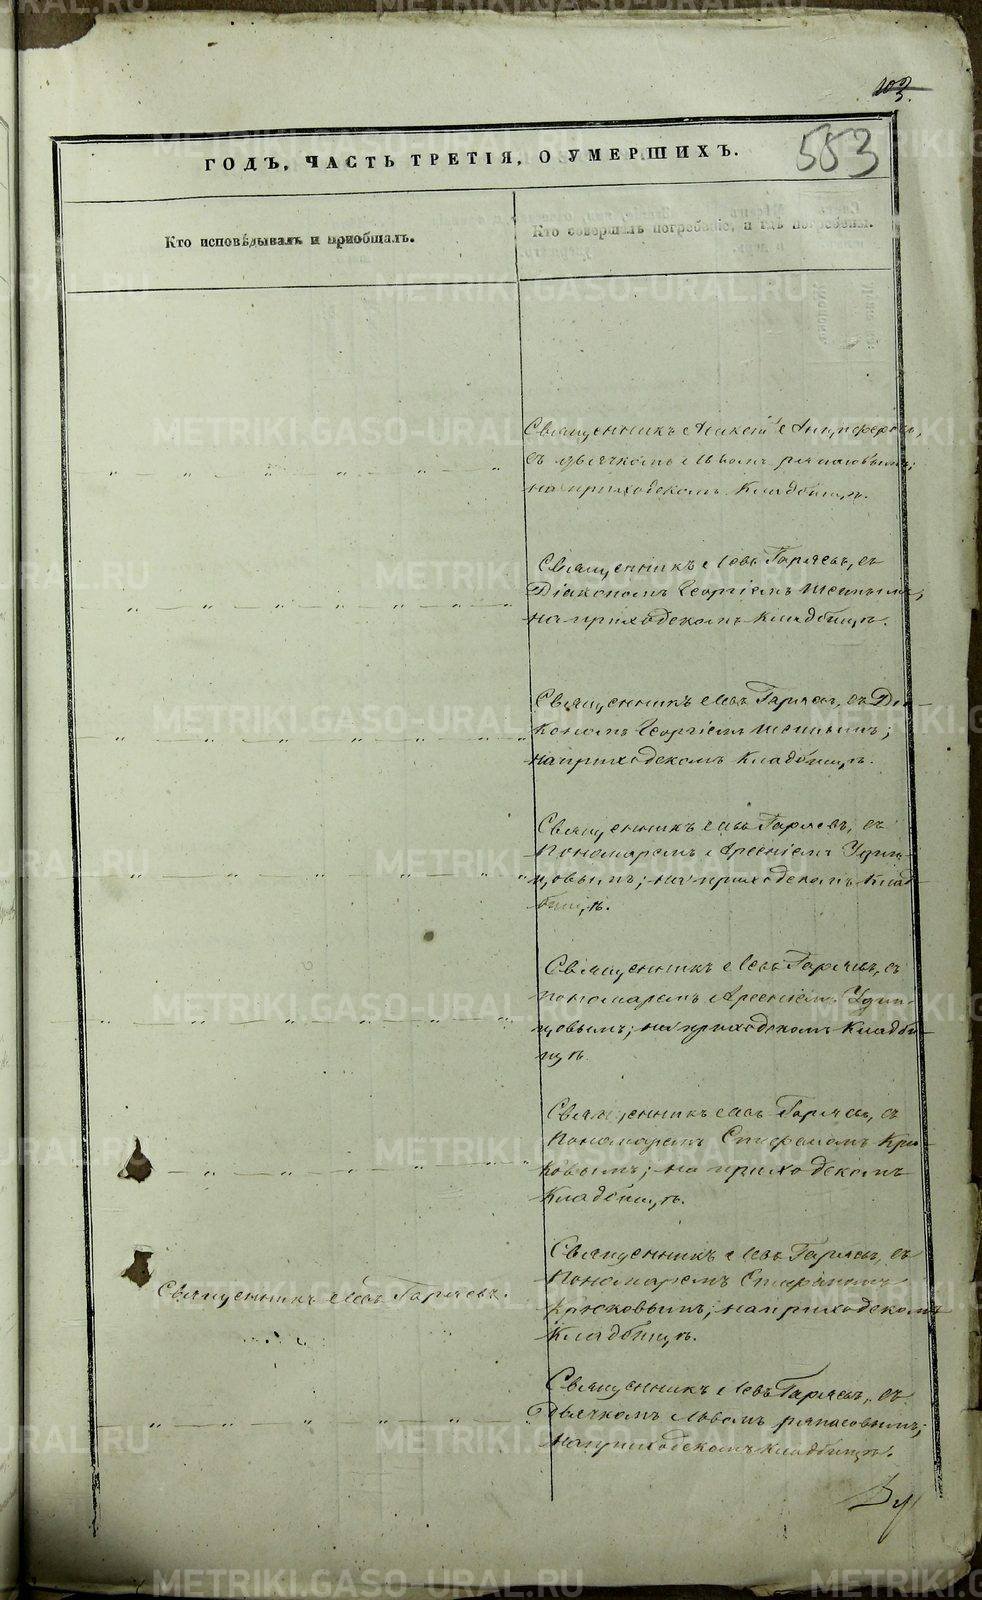 103.
583
ГОДЪ, ЧАСТЬ ТРЕТІЯ, О УМЕРШИХЪ.
Кто исповѣдывалъ и пріобщалъ.
Кто совершалъ погребеніе, и гдѣ погребены.
Священникъ Алексій
съ дьячкомъ Львомъ Ряпасовымъ;
на приходскомъ Кладбищѣ.
Священникъ Левъ Гаряевъ, съ
Діакономъ Георгіемъ
на приходскомъ Кладбищѣ.
Священникъ Левъ Гаряевъ, съ Діа-
кономъ Георгіемъ
на приходскомъ Кладбищѣ.
Священникъ Левъ Гаряевъ, съ
Пономаремъ Арсеніемъ Удин-
цовымъ; на приходскомъ Клад-
бищѣ.
Священникъ Левъ Гаряевъ, съ
пономаремъ Арсеніемъ Удин-
цовымъ; на приходскомъ Кладби-
щѣ.
Священникъ Левъ Гаряевъ, съ
Пономаремъ Стефаномъ Крю-
ковымъ; на приходскомъ
Кладбищѣ.
Священникъ Левъ Гаряевъ.
Священникъ Левъ Гаряевъ, съ
Пономаремъ Стефаномъ
Крюковымъ; на приходскомъ
Кладбищѣ.
Священникъ Левъ Гаряевъ, съ
Дьячкомъ Львомъ Ряпасовымъ;
на приходскомъ кладбищѣ.
METRIKI.GASO-URAL.RU